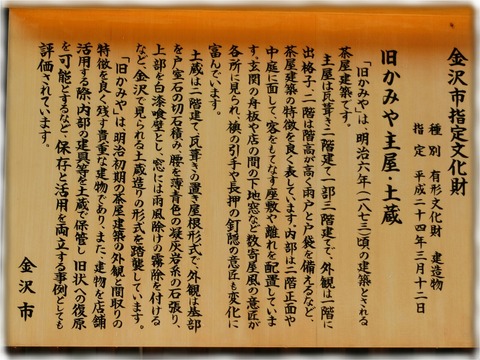 金沢市指定文化財
種別 有形文化財 建造物
指定 平成二十四年三月十二日
旧かみや主屋・土蔵
「旧かみや」は、明治六年(一八七三)頃の建築とされる
茶屋建築です。
主屋は瓦葺き二階建て一部三階建てで、外観は一階に
出格子、二階は階高が高く雨戸と戸袋を備えるなど、
茶屋建築の特徴を良く表しています。内部は二階正面や
中庭に面して、客をもてなす座敷や離れを配置していま
す。玄関の舟板や店の間の下地窓など数寄屋風の意匠が
各所に見られ、襖の引手や長押の釘隠の意匠も変化に
富んでいます。
土蔵は二階建て、瓦葺きの置き屋根形式で、外観は基部
を戸室石の切石積み、腰を薄青色の凝灰岩系の石張り、
上部を白漆喰壁とし、窓には雨風除けの霧除を付ける
など、金沢で見られる土蔵造りの形式を踏襲しています。
「旧かみや」は、明治初期の茶屋建築の外観と間取りの
特徴を良く残す貴重な建物であり、また、建物を店舗
活用する際、内部の建具等を土蔵で保管し旧状への復原
を可能とするなど、保存と活用を両立する事例としても
評価されています。
金沢市